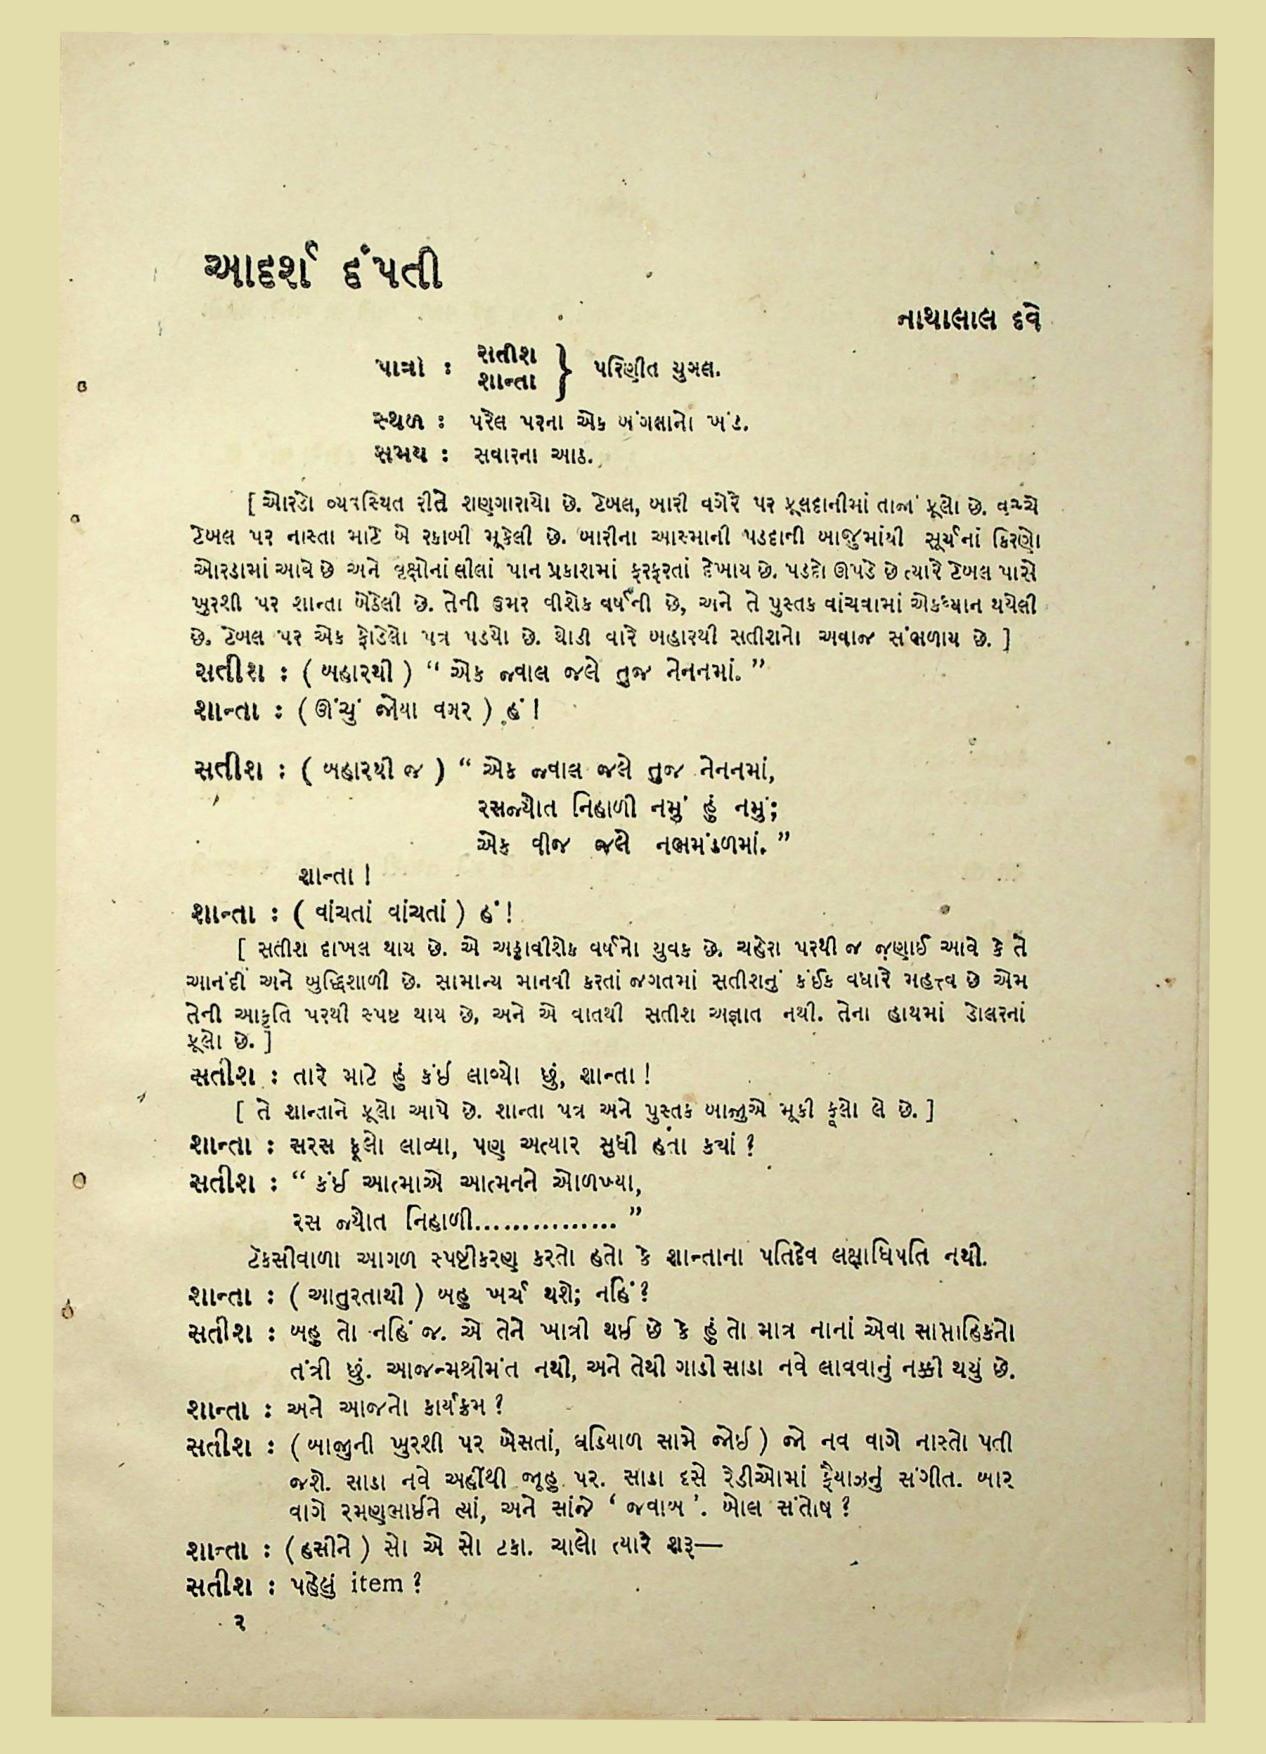 આદર્શ દંપતી
નાથાલાલ દવે
પાત્રો : સતીશ
શાન્તા } પરિણીત યુગલ.
સ્થળ : પરેલ પરના એક બંગલાનો ખંડ.
સમય : સવારના આઠ.
[ ઓરડો વ્યવસ્થિત રીતે શણગારાયો છે. ટેબલ, બારી વગેરે પર ફૂલદાનીમાં તાજાં ફૂલો છે. વચ્ચે
ટેબલ પર નાસ્તા માટે બે રકાબી મૂકેલી છે. બારીના આસ્માની પડદાની બાજુમાંથી સૂર્યનાં કિરણો
ઓરડામાં આવે છે અને વૃક્ષોનાં લીલાં પાન પ્રકાશમાં ફરફરતાં દેખાય છે. પડદો ઊપડે છે ત્યારે ટેબલ પાસે
ખુરશી પર શાન્તા બેઠેલી છે. તેની ઉમર વીશેક વર્ષની છે, અને તે પુસ્તક વાંચવામાં એકધ્યાન થયેલી
છે. ટેબલ પર એક ફોડેલો પત્ર પડયો છે. થોડી વારે બહારથી સતીશનો અવાજ સંભળાય છે. ]
સતીશ : ( બહારથી ) “ એક જ્વાલ જલે તુજ નેનનમાં. ”
શાન્તા : ( ઊંચું જોયા વગર ) હં !
સતીશ : ( બહારથી જ ) “ એક જ્વાલ જલે તુજ નેનનમાં,
રસજ્યોત નિહાળી નમું હું નમું;
એક વીજ જલે નભમંડળમાં. ”
શાન્તા !
શાન્તા : ( વાંચતાં વાંચતાં ) હં !
[ સતીશ દાખલ થાય છે. એ અઠ્ઠાવીશેક વર્ષનો યુવક છે. ચહેરા પરથી જ જણાઈ આવે કે તે
આનંદી અને બુદ્ધિશાળી છે. સામાન્ય માનવી કરતાં જગતમાં સતીશનું કંઈક વધારે મહત્ત્વ છે એમ
તેની આકૃતિ પરથી સ્પષ્ટ થાય છે, અને એ વાતથી સતીશ અજ્ઞાત નથી. તેના હાથમાં ડોલરનાં
ફૂલો છે. ]
સતીશ : તારે માટે હું કંઈ લાવ્યો છું, શાન્તા !
[ તે શાન્તાને ફૂલો આપે છે. શાન્તા પત્ર અને પુસ્તક બાજુએ મૂકી ફૂલો લે છે. ]
શાન્તા : સરસ ફૂલો લાવ્યા, પણ અત્યાર સુધી હતા ક્યાં ?
સતીશ : “ કંઈ આત્માએ આત્મનને ઓળખ્યા,
રસ જ્યોત નિહાળી............... ”
ટેક્સીવાળા આગળ સ્પષ્ટીકરણ કરતો હતો કે શાન્તાના પતિદેવ લક્ષાધિપતિ નથી.
શાન્તા : ( આતુરતાથી ) બહુ ખર્ચ થશે; નહિં ?
સતીશ : બહુ તો નહિં જ. એ તેને ખાત્રી થઈ છે કે હું તો માત્ર નાનાં એવા સાપ્તાહિકનો
તંત્રી છું. આજન્મશ્રીમંત નથી, અને તેથી ગાડી સાડા નવે લાવવાનું નક્કી થયું છે.
શાન્તા : અને આજનો કાર્યક્રમ ?
સતીશ : ( બાજુની ખુરશી પર બેસતાં, ઘડિયાળ સામે જોઈ ) જો નવ વાગે નાસ્તો પતી
જશે. સાડા નવે અહીંથી જૂહુ પર. સાડા દસે રેડીઓમાં ફૈયાઝનું સંગીત. બાર
વાગે રમણભાઈને ત્યાં, અને સાંજે ‘ જવાબ ’. બોલ સંતોષ ?
શાન્તા : ( હસીને ) સો એ સો ટકા. ચાલો ત્યારે શરૂ—
સતીશ : પહેલું item ?
૨